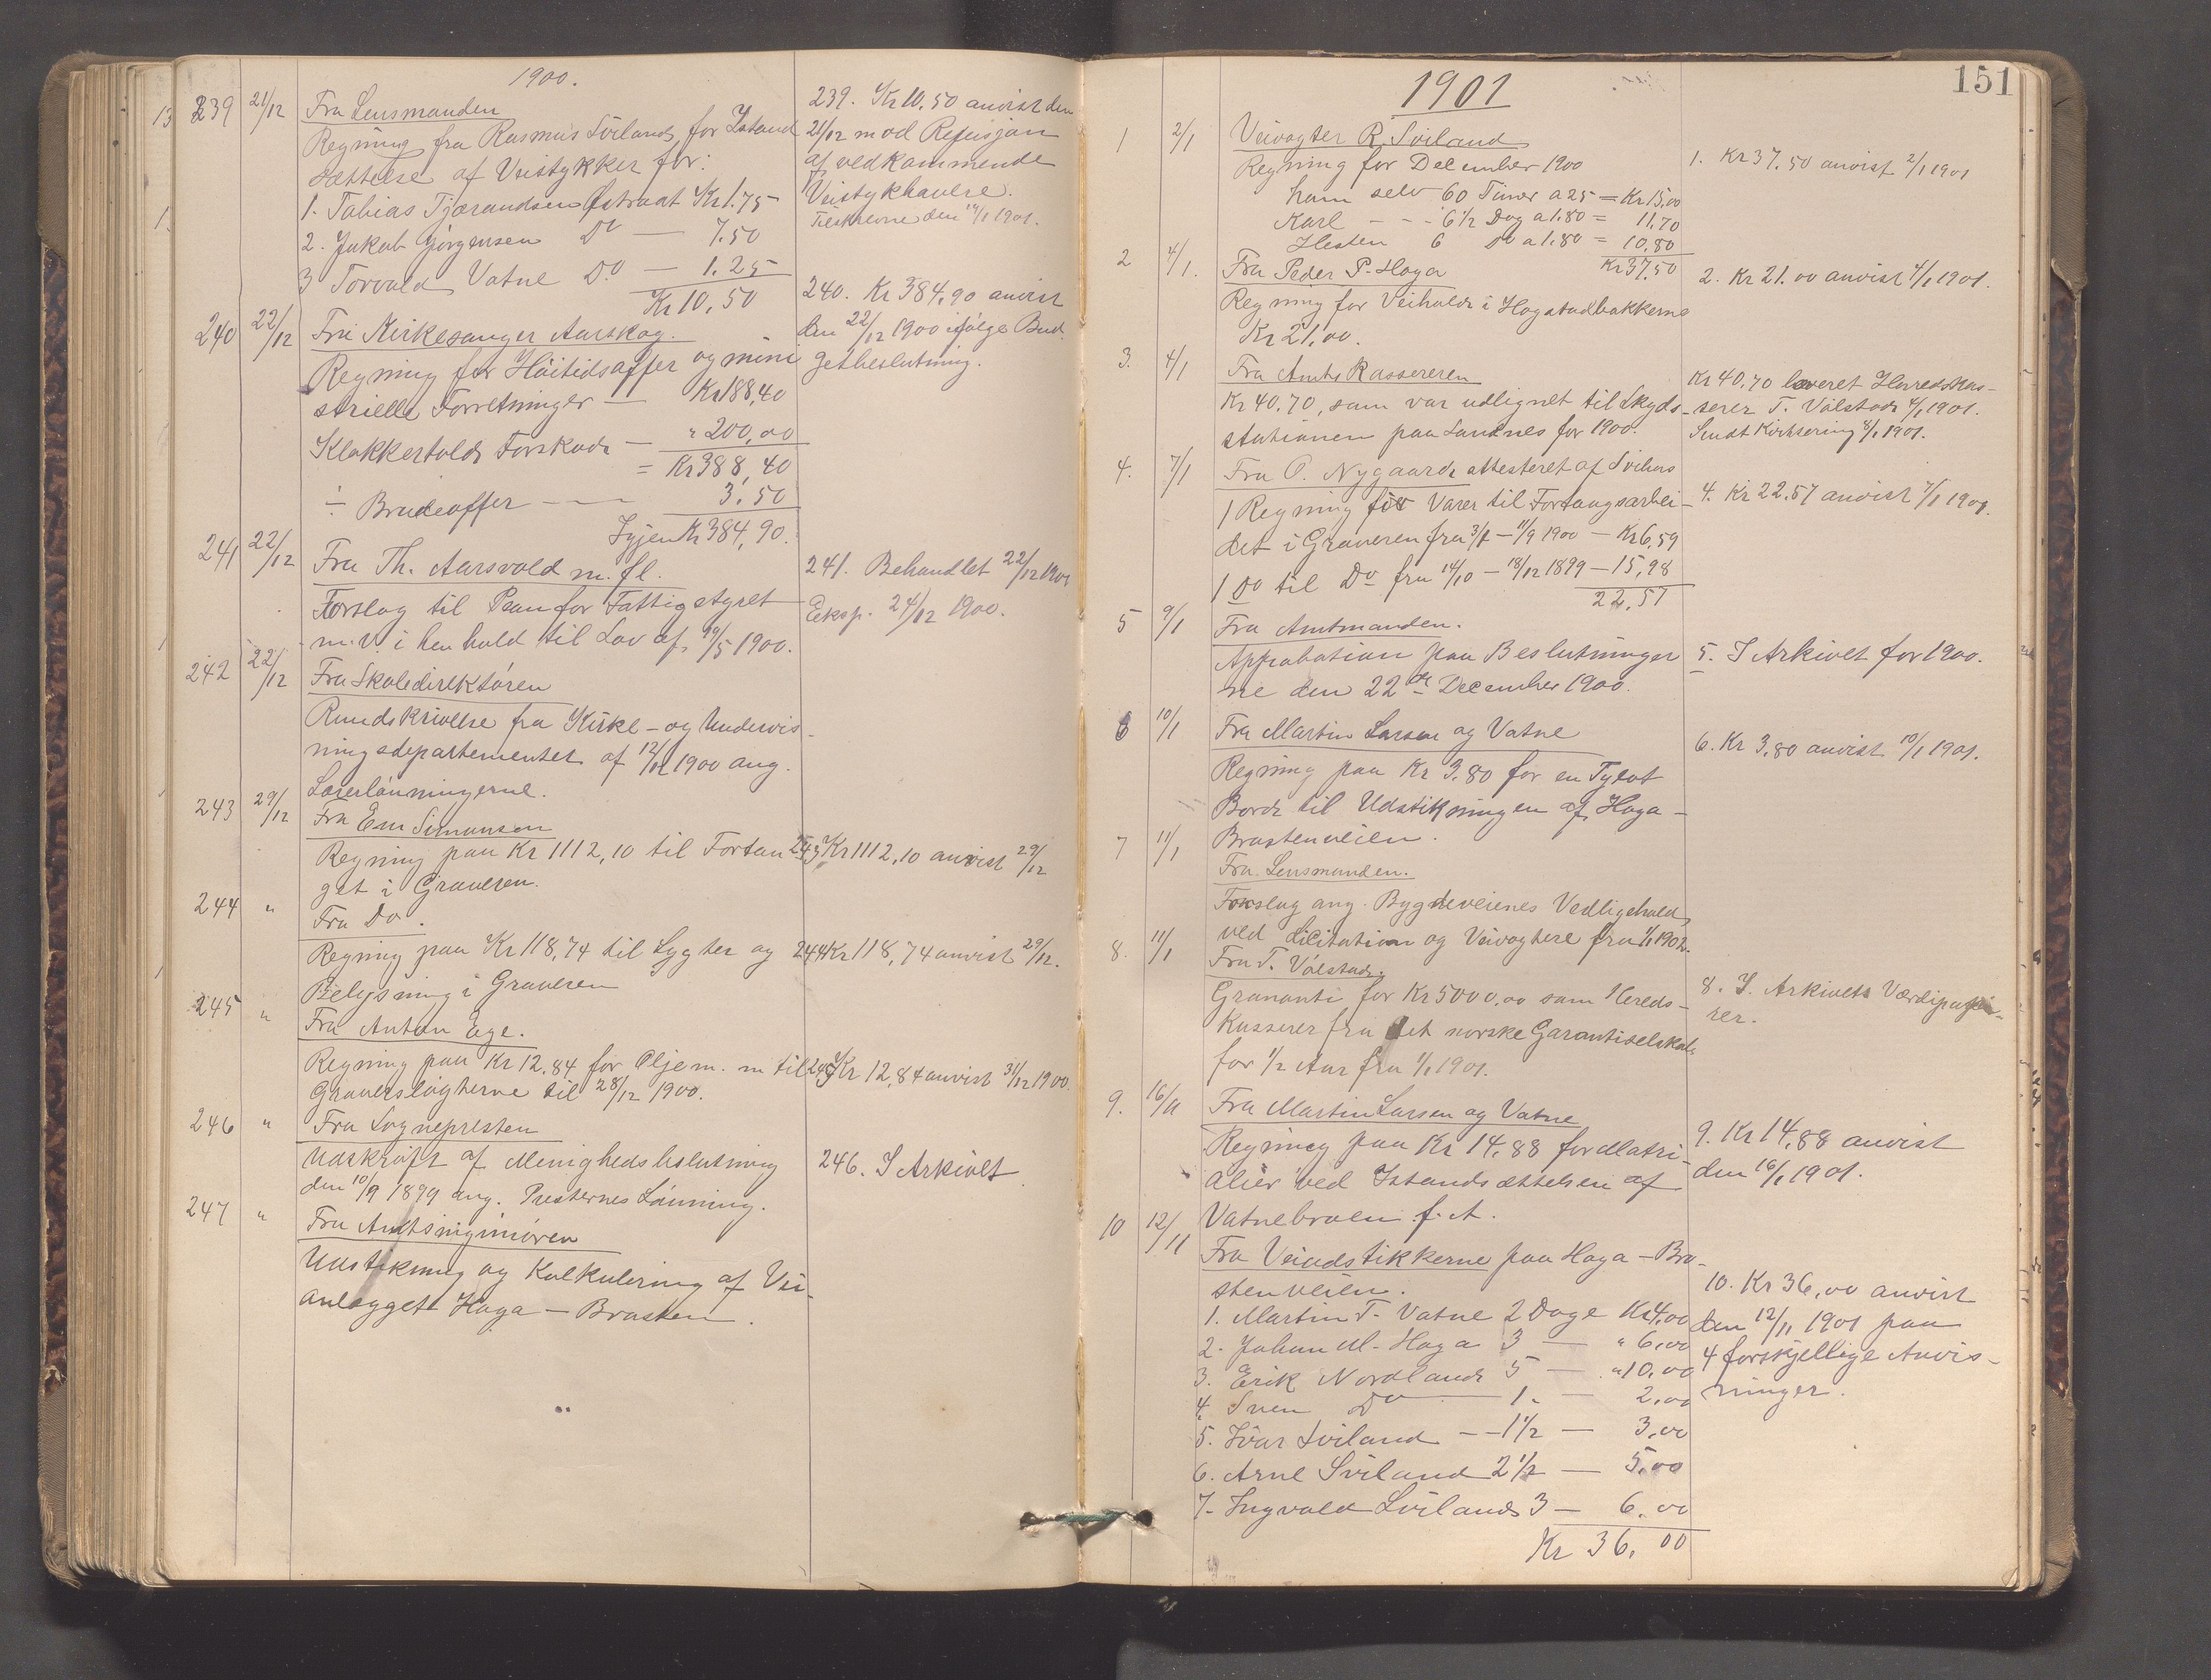 1900.
239 21/12 Fra Lensmanden
Regning fra Rasmus Sviland for Istand
sættelse af Veistykker for:
1. Tobias Tjærandsen Østraat Kr 1.75
2. Jakob Jørgensen Do — 7.50
3 Torvald Vatne Do — 1.25
Kr 10,50
239. Kr 10,50 anvist den
21/12 mod Refusjon
af vedkommende
Veistykhavere.
Tilskrevne den 14/1 1901.
240 22/12 Fra Kirkesanger Aarskog.
Regning for Höitidsoffer og mini
strielle Forretninger — Kr 188,40
Klokkertolds Forskud — " 200,00
= Kr 388,40
÷ Brudeoffer — 3.50
Igjen Kr 384,90.
240. Kr 384,90 anvist
den 22/12 1900 ifölge Bud
getbeslutning.
241 22/12 Fra Th. Aarsvold m. fl.
Forslag til Plan for Fattigstyret
m.v. i henhold til Lov af 19/5 1900.
241. Behandlet 22/12 1900
Eksp. 24/12 1900.
242 22/12 Fra Skoledirektören
Rundskrivelse fra Kirke- og Undervis-
ningsdepartementet af 12/12 1900 ang.
Lærerlönningerne.
243 29/12 Fra Em Simonsen
Regning paa Kr 1112,10 til Fortau
get i Graveren.
243 Kr 1112,10 anvist 29/12
244 " Fra Do.
Regning paa Kr 118,74 til Lygter og
Belysning i Graveren
244 Kr 118,74 anvist 29/12.
245 " Fra Anton Ege.
Regning paa Kr 12,84 for Olje m. m til
Graverslygterne til 28/12 1900.
245 Kr 12,84 anvist 31/12 1900.
246 " Fra Sognepresten
Udskrift af Menighedsbeslutning
den 10/9 1899 ang. Presternes Lönning.
246. I Arkivet
247 " Fra Amtsingeniören
Udstikning og Kalkulering af Vei-
anlægget Hoga — Brasten.
151
1901
1 2/1 Veivogter R. Sviland
Regning for December 1900
ham selv 60 Timer a 25 = Kr 15,00
Karl - - - 6 1/2 Dag a 1.80 = 11,70
Hesten 6 Do a 1.80 = 10,80
Kr 37,50
1. Kr 37.50 anvist 2/1 1901
2 4/1. Fra Peder P. Hoga
Regning for Veihold i Hogstadbakkerne
Kr 21,00.
2. Kr 21.00 anvist 4/1 1901.
3. 4/1 Fra Amtskassereren
Kr 40.70, som var udlignet til Skyds-
stationen paa Sandnes for 1900.
Kr 40,70 leveret Herredskas-
serer T. Vålstad 4/1 1901.
Sendt Kvittering 8/1 1901.
4. 7/1 Fra O. Nygaard attesteret af Svihus
1 Regning for Varer til Fortaugsarbei-
det i Graveren fra 3/8 — 11/9 1900 — Kr 6,59
1 Do til Do fra 14/10 — 18/12 1899 — 15,98
22,57
4. Kr 22.57 anvist 7/1 1901.
5 9/1 Fra Amtmanden.
Approbation paa Beslutninger
ne den 22de December 1900.
5. I Arkivet for 1900.
6 10/1 Fra Martin Larsen og Vatne
Regning paa Kr 3.80 for en Tylvt
Bord til Udstikningen af Hoga-
Brastenveien.
6. Kr 3,80 anvist 10/1 1901.
7 11/1
Fra Lensmanden.
Forslag ang. Bygdeveienes Vedligehold
ved Licitation og Veivogtere fra 1/1 1902.
8. 11/1 Fra T. Vålstad.
Garanti for Kr 5000,00 som Hereds-
kasserer fra det norske Garantiselskab
for 1/2 Aar fra 1/1 1901.
8. I. Arkivets Værdipapi-
rer.
9. 16/11 Fra Martin Larsen og Vatne
Regning paa Kr 14,88 for Matri
alier ved Istandsættelsen af
Vatnebroen f. A.
9. Kr 14,88 anvist
den 16/1 1901.
10 12/11
Fra Veiudstikkerne paa Hoga - Bra-
stenveien.
1. Martin T. Vatne 2 Dage Kr 4,00
2. Johan M. Hoga 3 — " 6,00
3. Erik Nordland 5 — " 10,00
4. Sven Do 1. — 2,00
5. Ivar Sviland — 1 1/2 — 3,00
6. Arne Sviland 2 1/2 — 5,00
7. Ingvald Sviland 3 — 6,00
Kr 36,00
10. Kr 36,00 anvist
den 12/11 1901 paa
4 forskjellige Anvis-
ninger.